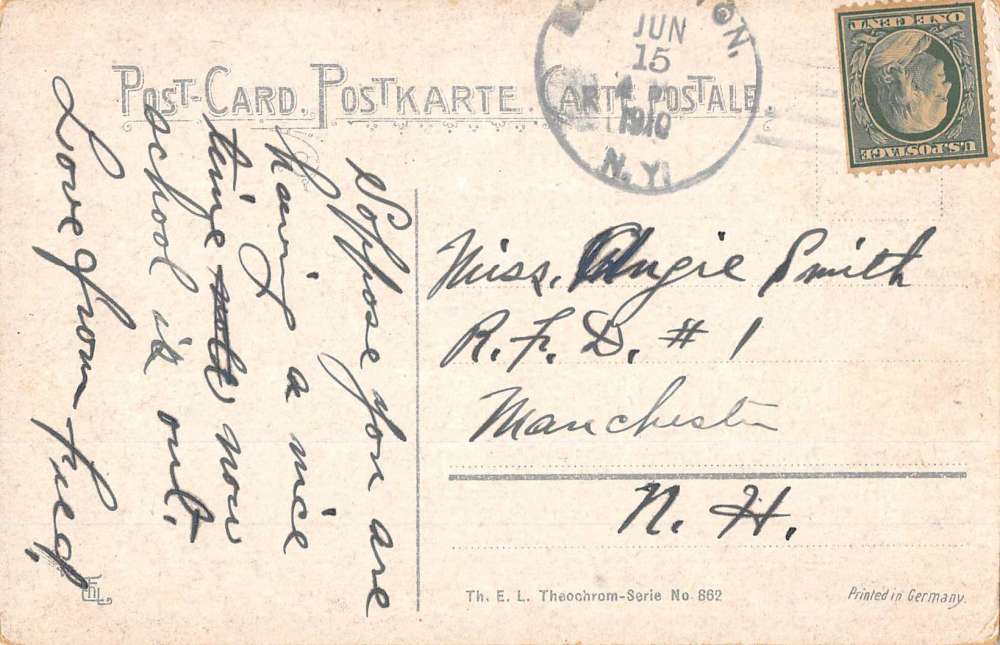 POST-CARD. POSTKARTE. CARTE POSTALE.
JUN
15
1910
N.Y.
U.S. POSTAGE
ONE CENT
Soppose you are
having a nice
time now
school is out.
Love from Fred.
Miss. Angie Smith
R. F. D. # 1
Manchester
N. H.
ThEL
Th. E. L. Theochrom-Serie No. 862
Printed in Germany.